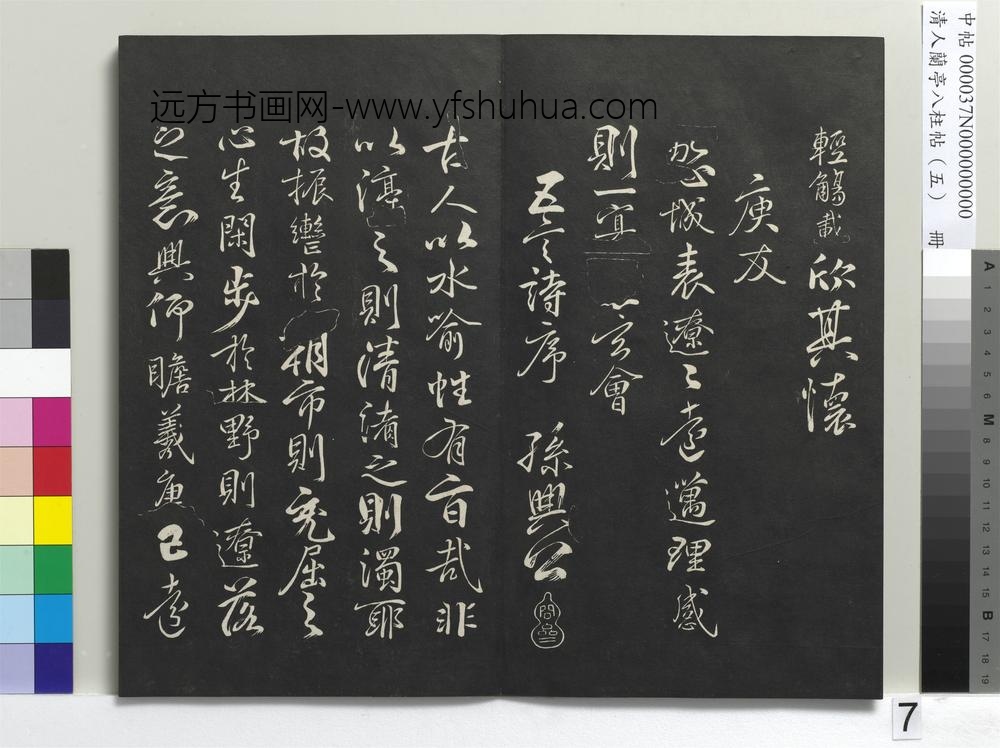 輕觴載欣其懷
庾友
城表遼〻遠邁理感
則一冥會
五言詩序 孫興公
古人以水喻性有旨哉非
以渟之則清淆之則濁耶
故振轡於朝市則充屈之
心生閑步於林野則遼落
之意興仰瞻羲唐已遠
远方书画网-www.yfshuhua.com
中帖 000037N000000000
清人蘭亭八柱帖（五） 冊
A 1 2 3 4 5 6 M 8 9 10 11 12 13 14 15 B 17 18 19
7